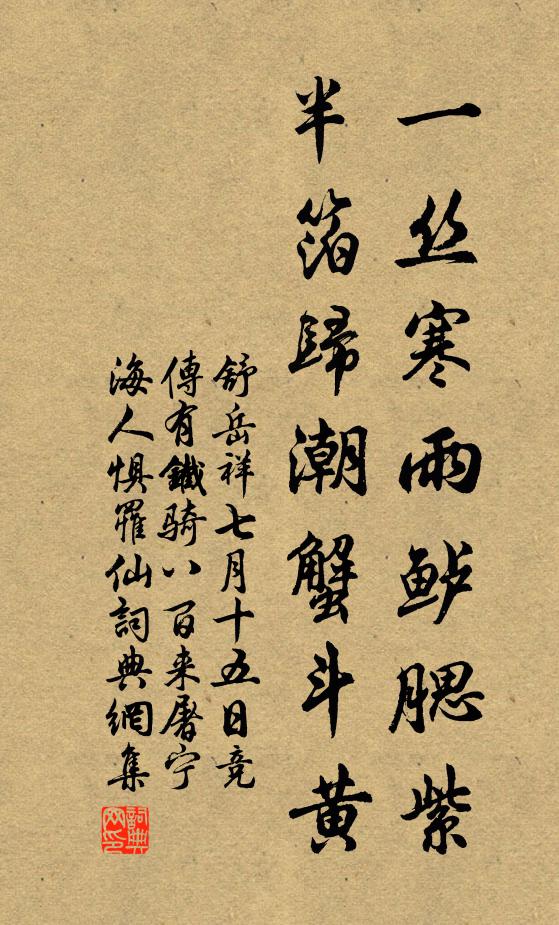 一丝寒雨鲈腮紫
半箔歸潮蟹斗黄
舒岳祥七月十五日竞
傳有鐵騎八百来屠宁
海人惧羅仙詞典網集
詞典網印